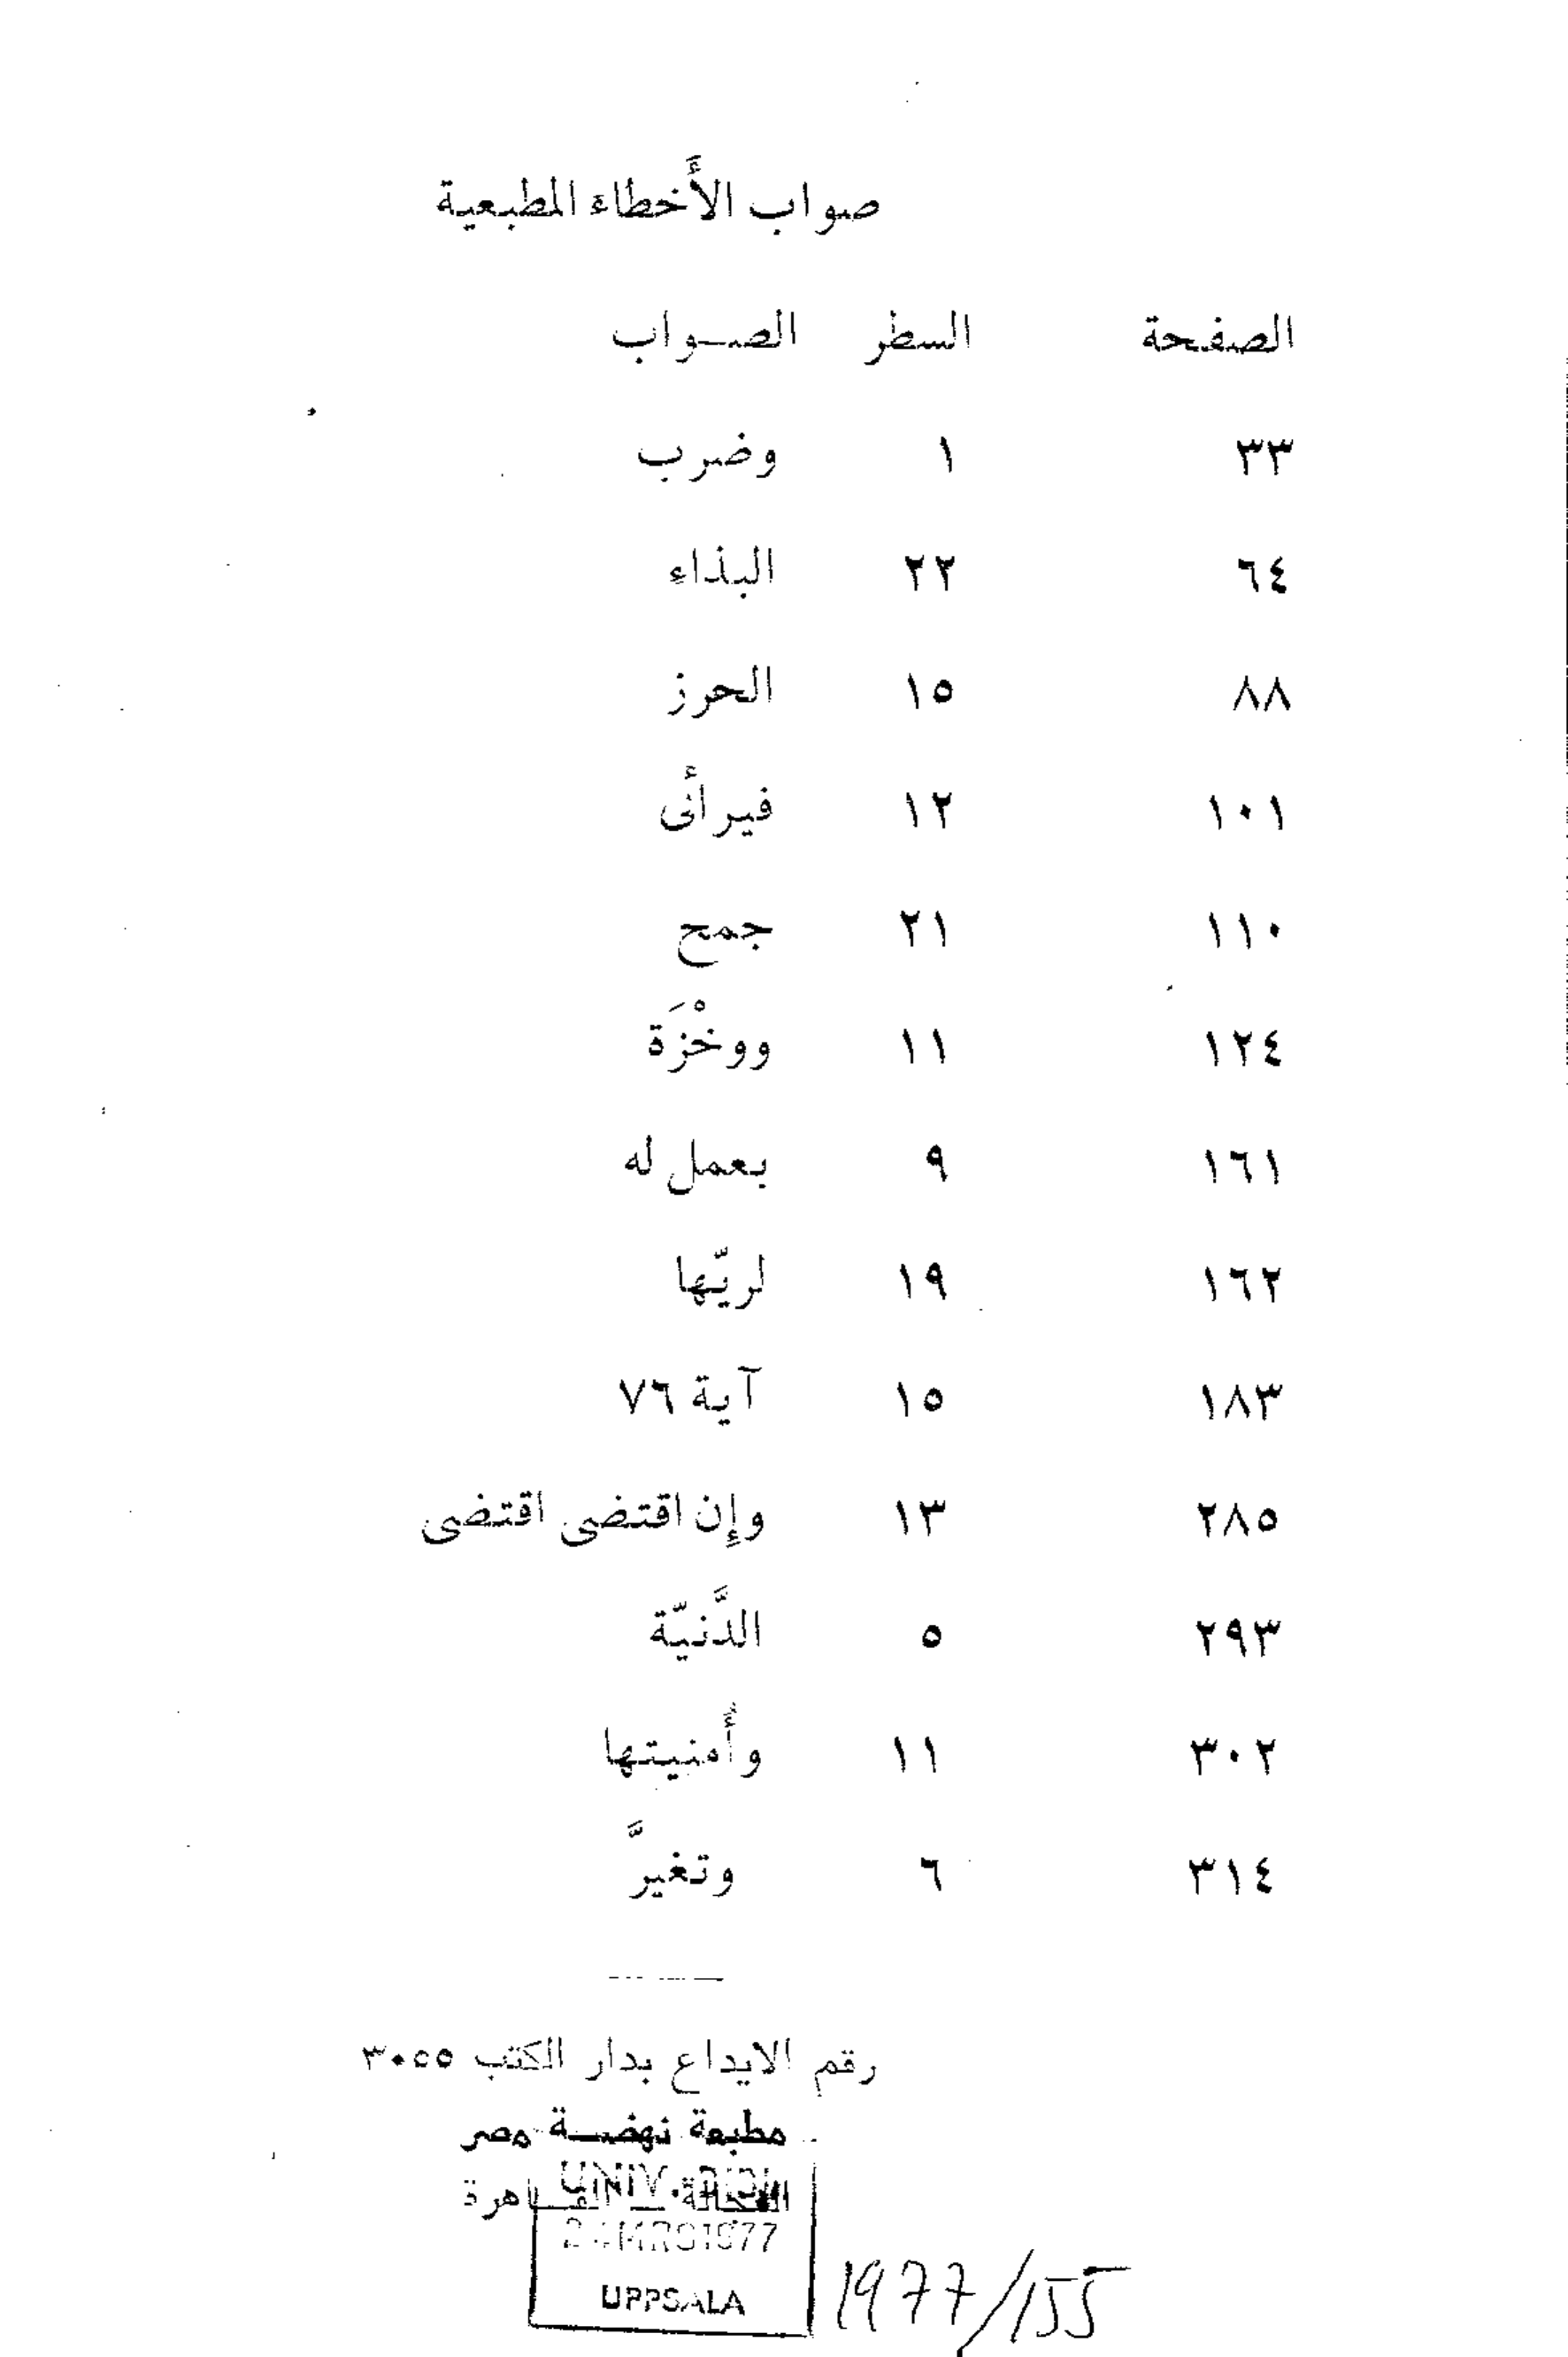 صواب الأخطاء المطبعية
الصفحة السطر الصـواب
٣٣ ١ وضرب
٦٤ ٢٢ البذاءِ
٨٨ ١٥ الحرز
١٠١ ١٢ فيرأئى
١١٠ ٢١ جمح
١٢٤ ١١ ووخْزَة
١٦١ ٩ بعمل له
١٦٢ ١٩ لريّها
١٨٣ ١٥ آية ٧٦
٢٨٥ ١٣ وإن اقتضى اقتضى
٢٩٣ ٥ الدَّنيّة
٣٠٢ ١١ وأُمنيتها
٣١٤ ٦ وتغيرَّ
رقم الايداع بدار الكتب ٣٠٥٥
مطبعة نهضـة مصر
الفجالة – القـاهرة
UNIV. BIBL.
MRS 1977
UPPSALA
1977/155